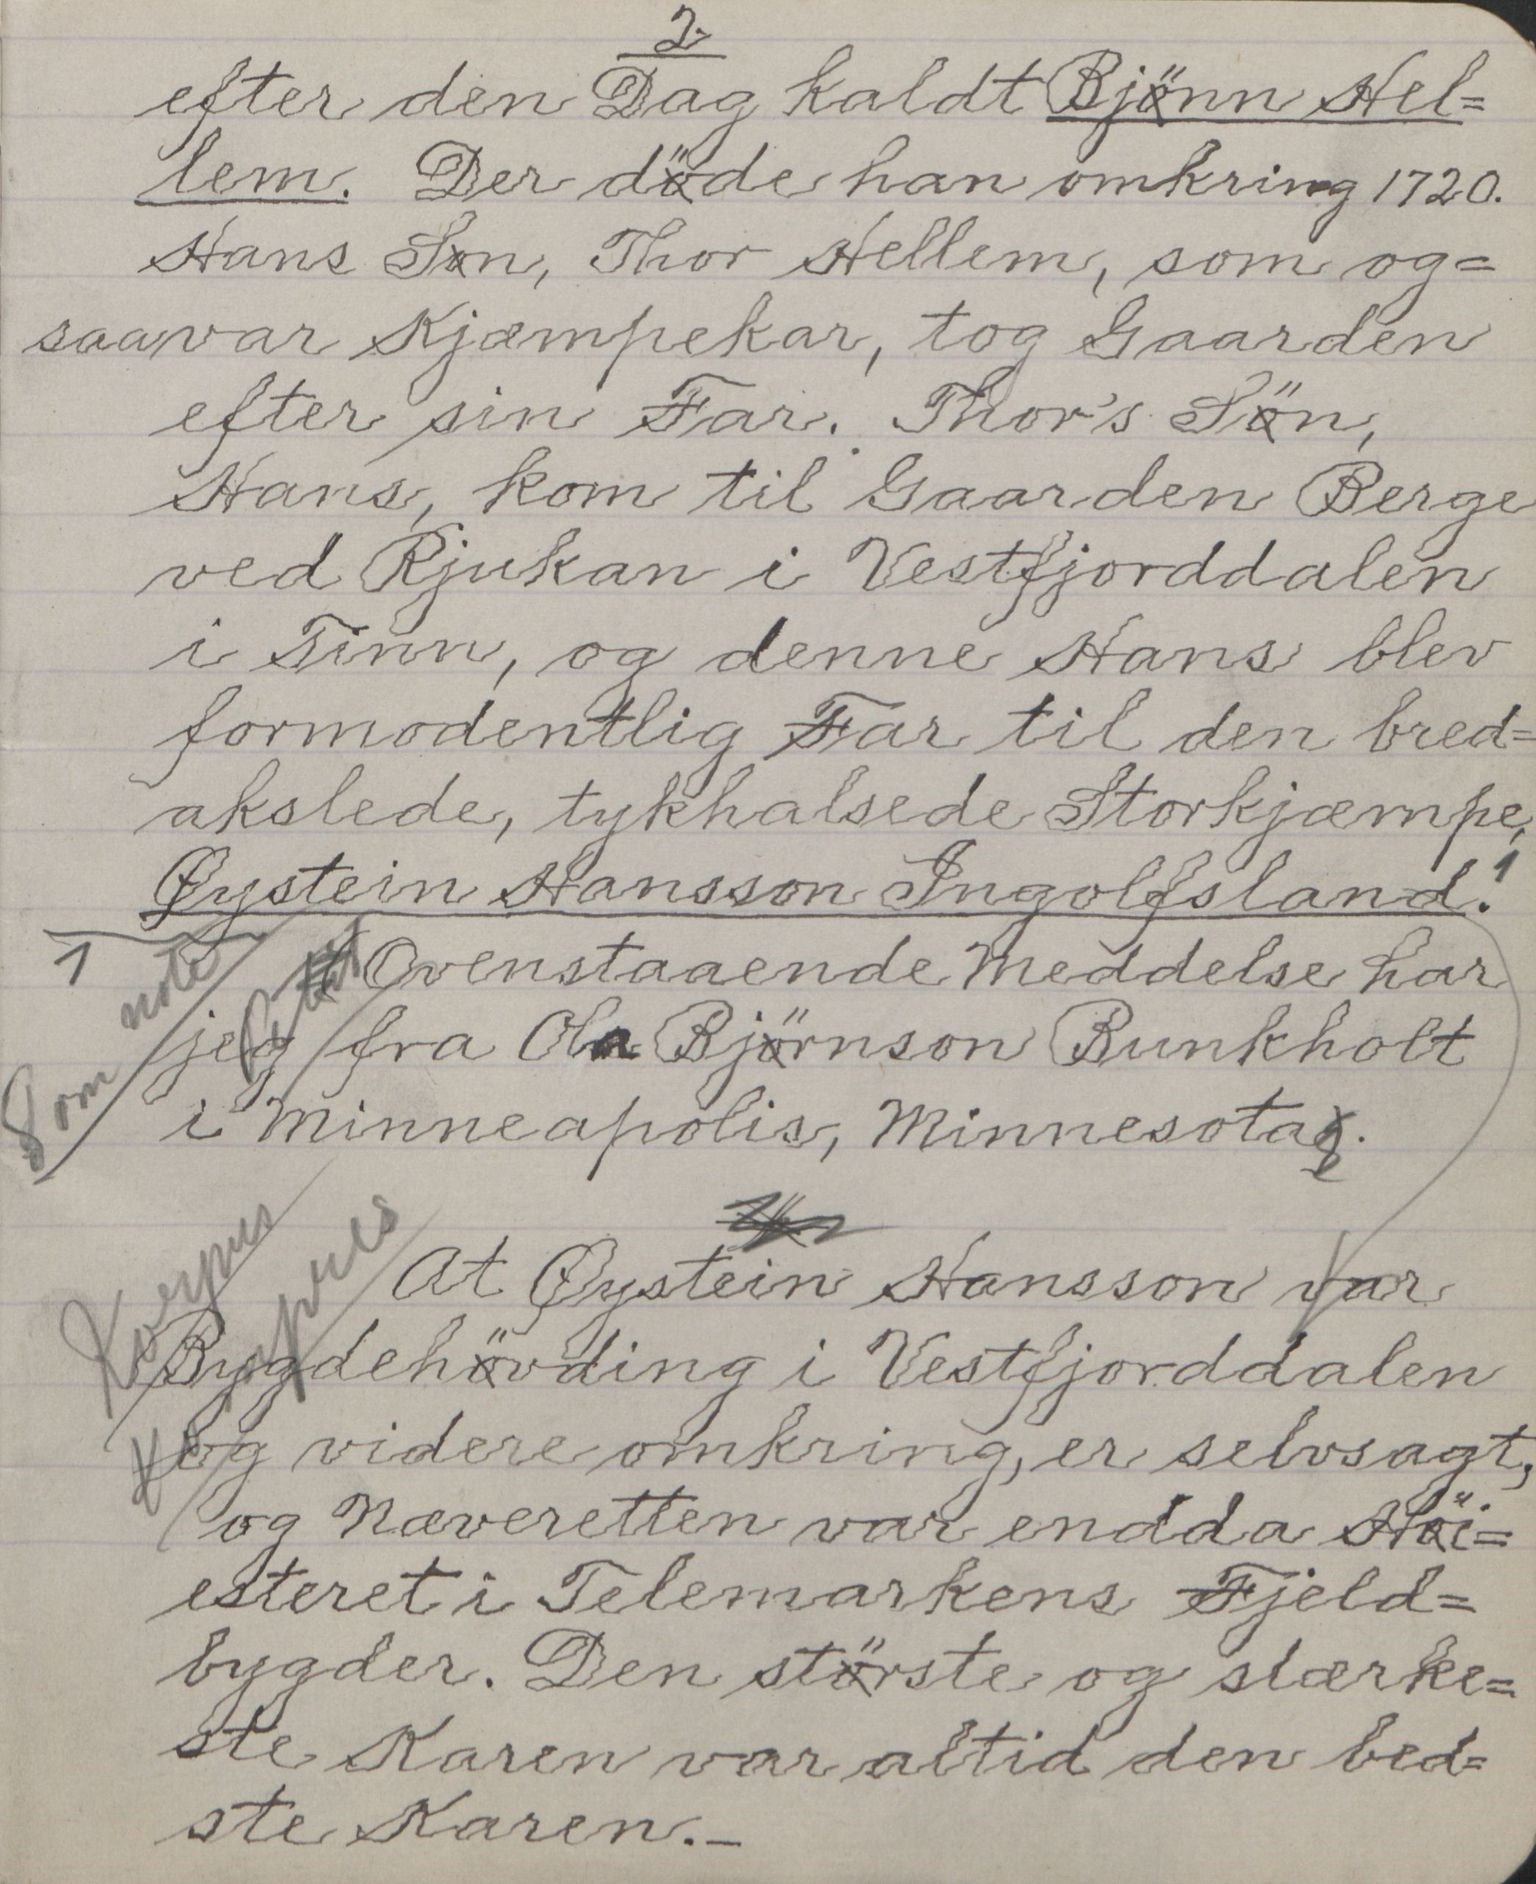 2.
efter den Dag kaldt Bjönn Hel=
lem. Der döde han omkring 1720.
Hans Søn, Thor Hellem, som og=
saa var Kjæmpekar, tog Gaarden
efter sin Far. Thor's Sön,
Hans, kom til Gaarden Berge
ved Rjukan i Vestfjorddalen
i Tinn, og denne Hans blev
formodentlig Far til den bred=
akslede, tykhalsede Storkjæmpe,
Øystein Hansson Ingolfsland.1
1 Ovenstaaende Meddelse har
jeg fra Ola Björnson Bunkholt
i Minneapolis, Minnesota.
Som note
Petit
At Øystein Hansson var
Bygdehövding i Vestfjorddalen
og videre omkring, er selvsagt,
og Næveretten var endda Höi=
esteret i Telemarkens Fjeld=
bygder. Den störste og stærke=
ste Karen var altid den bed=
ste Karen.-
Korpus